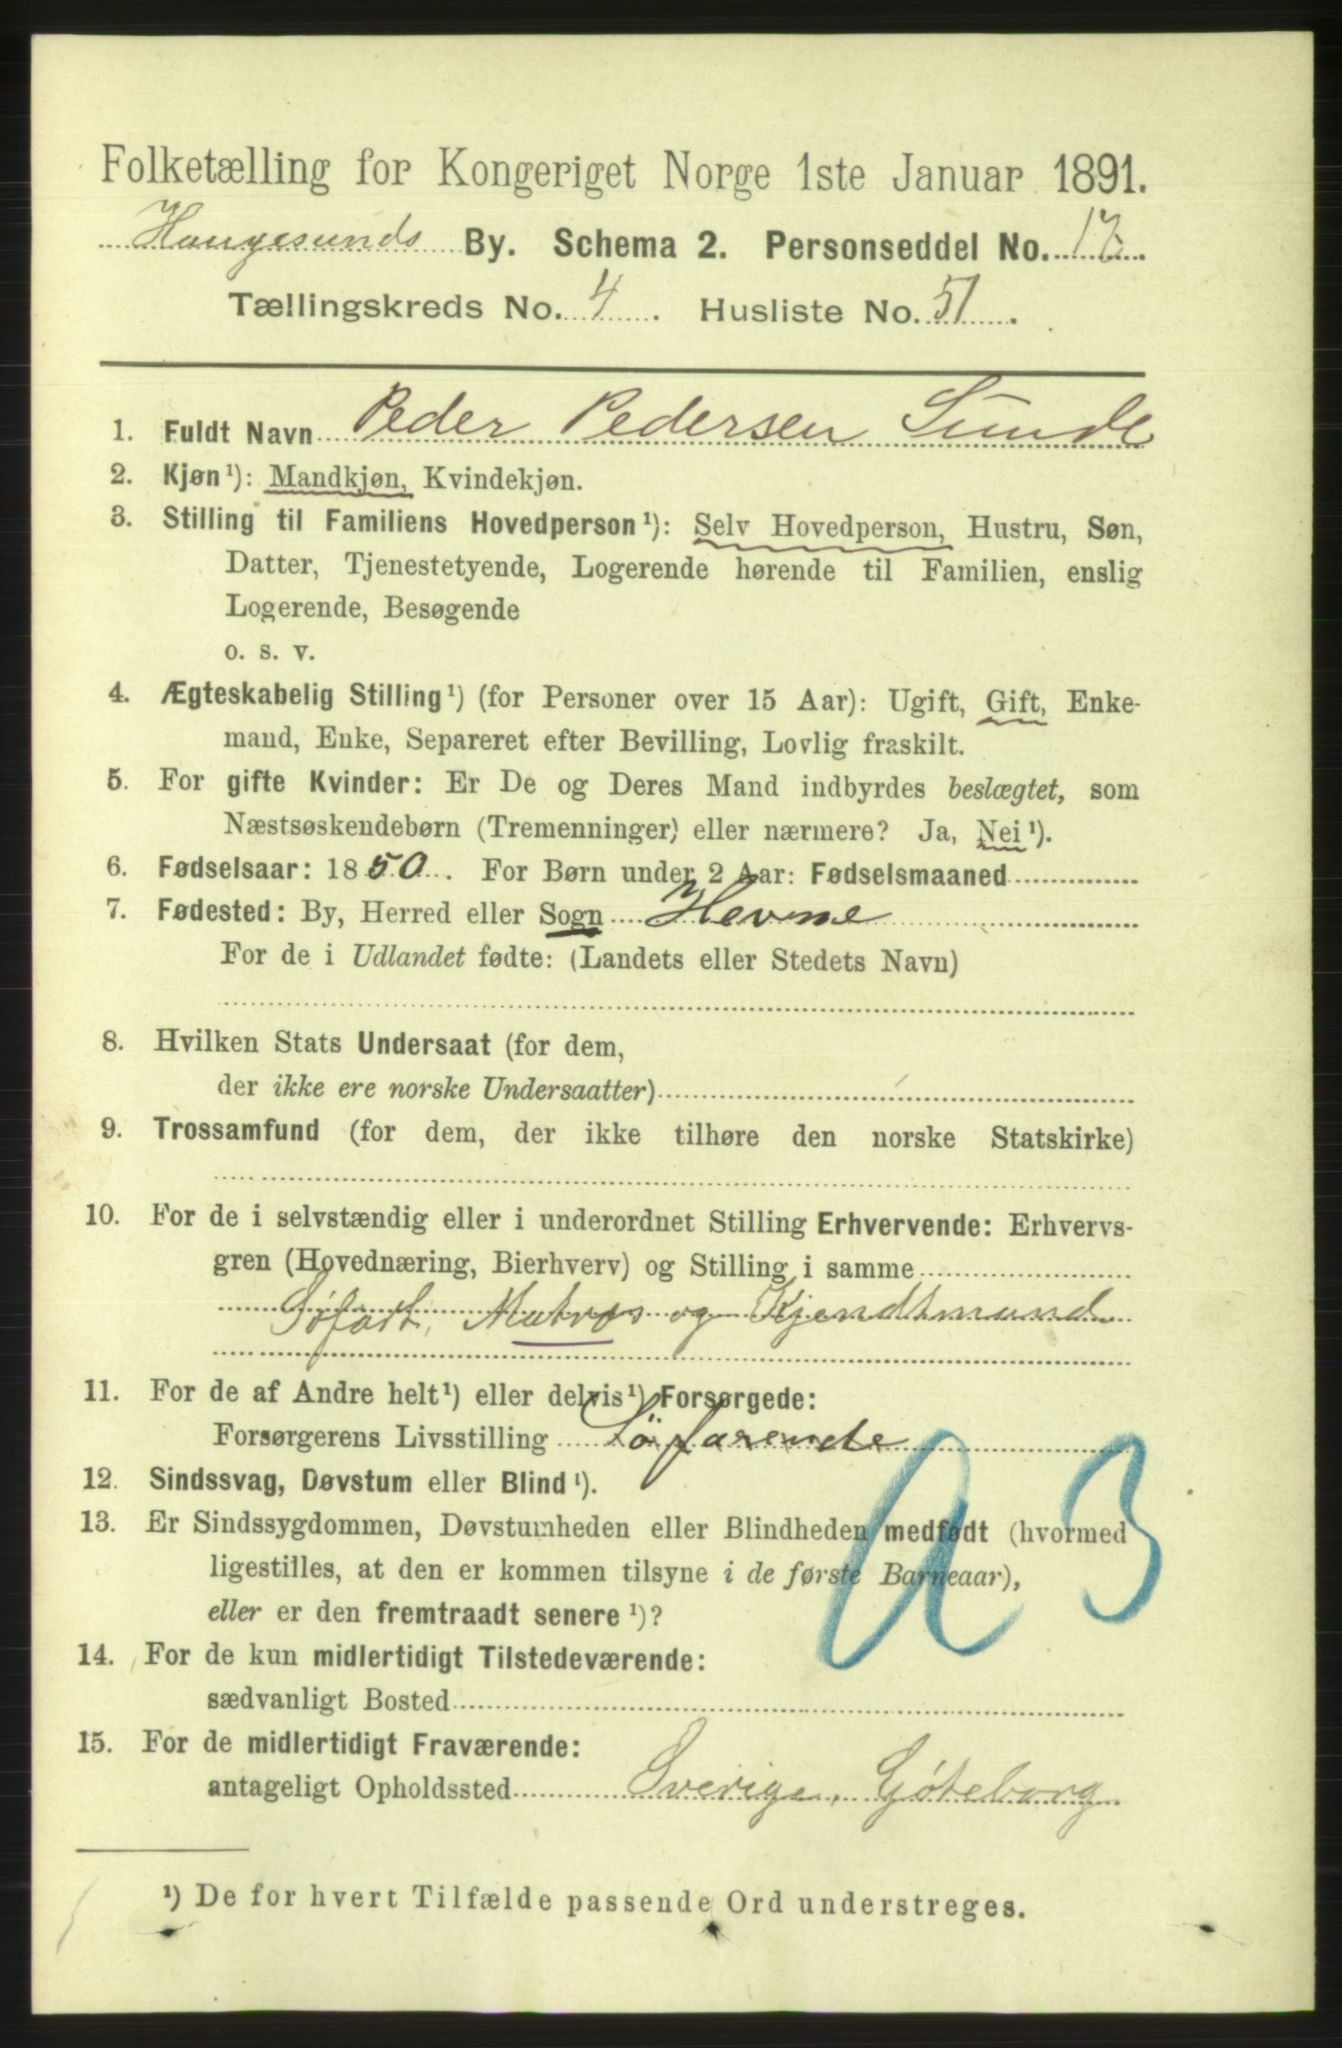 Folketælling for Kongeriget Norge 1ste Januar 1891.
Haugesunds By. Schema 2. Personseddel No. 13.
Tællingskreds No. 4. Husliste No. 51.
1. Fuldt Navn Peder Pedersen Sunde
2. Kjøn ¹): Mandkjøn, Kvindekjøn.
3. Stilling til Familiens Hovedperson ¹): Selv Hovedperson, Hustru, Søn,
Datter, Tjenestetyende, Logerende hørende til Familien, enslig
Logerende, Besøgende
o. s. v.
4. Ægteskabelig Stilling ¹) (for Personer over 15 Aar): Ugift, Gift, Enke-
mand, Enke, Separeret efter Bevilling, Lovlig fraskilt.
5. For gifte Kvinder: Er De og Deres Mand indbyrdes beslægtet, som
Næstsøskendebørn (Tremenninger) eller nærmere? Ja, Nei ¹).
6. Fødselsaar: 1850. For Børn under 2 Aar: Fødselsmaaned
7. Fødested: By, Herred eller Sogn Hevne
For de i Udlandet fødte: (Landets eller Stedets Navn)
8. Hvilken Stats Undersaat (for dem,
der ikke ere norske Undersaatter)
9. Trossamfund (for dem, der ikke tilhøre den norske Statskirke)
10. For de i selvstændig eller i underordnet Stilling Erhvervende: Erhvervs-
gren (Hovednæring, Bierhverv) og Stilling i samme
Søfart, Matros og Kjendtmand
11. For de af Andre helt ¹) eller delvis ¹) Forsørgede:
Forsørgerens Livsstilling Söfarende
12. Sindssvag, Døvstum eller Blind ¹).
13. Er Sindssygdommen, Døvstumheden eller Blindheden medfødt (hvormed
ligestilles, at den er kommen tilsyne i de første Barneaar),
eller er den fremtraadt senere ¹)?
14. For de kun midlertidigt Tilstedeværende:
sædvanligt Bosted
15. For de midlertidigt Fraværende:
antageligt Opholdssted Sverige, Gøteborg
¹) De for hvert Tilfælde passende Ord understreges.